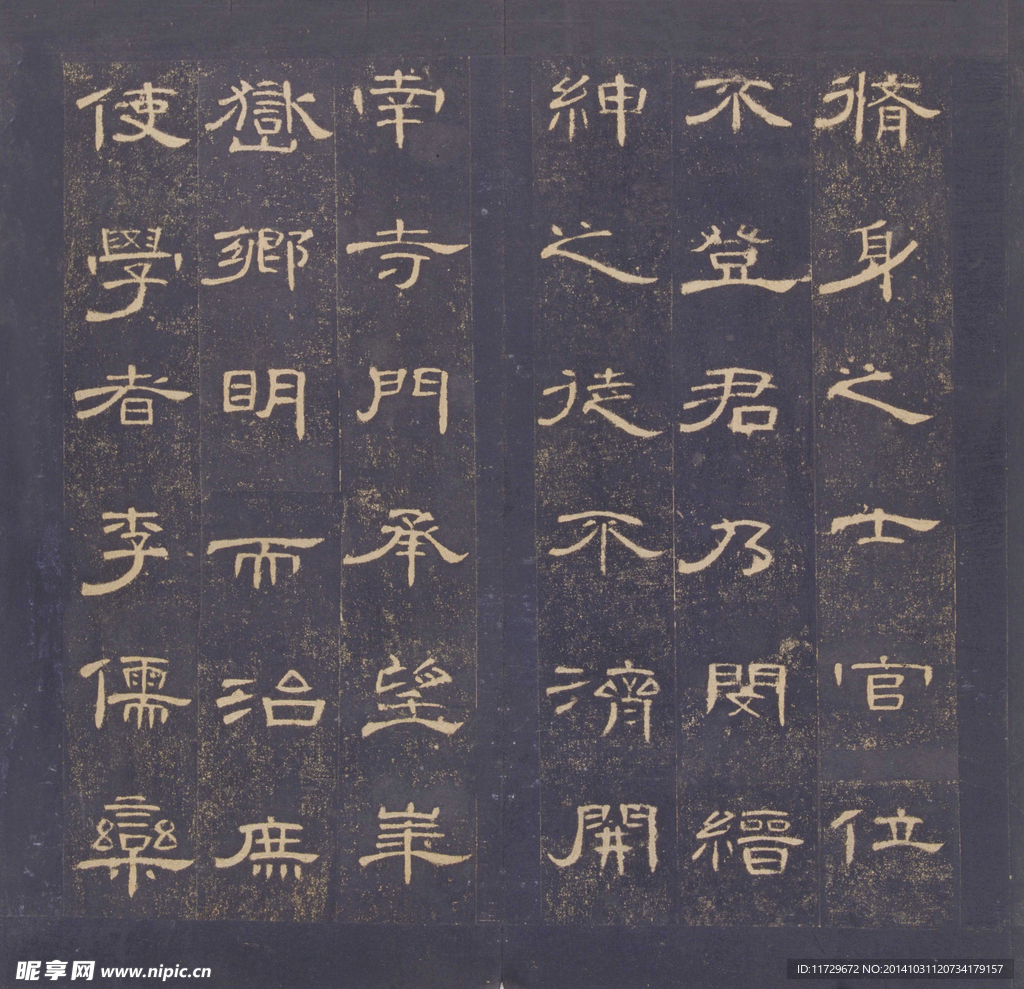 脩身之士官位
不登君乃閔縉
紳之徒不濟開
幸寺門承望峯
嶽鄉明而治庶
使學者李儒欒
昵享网 www.nipic.cn
ID:11729672 NO:20141031120734179157